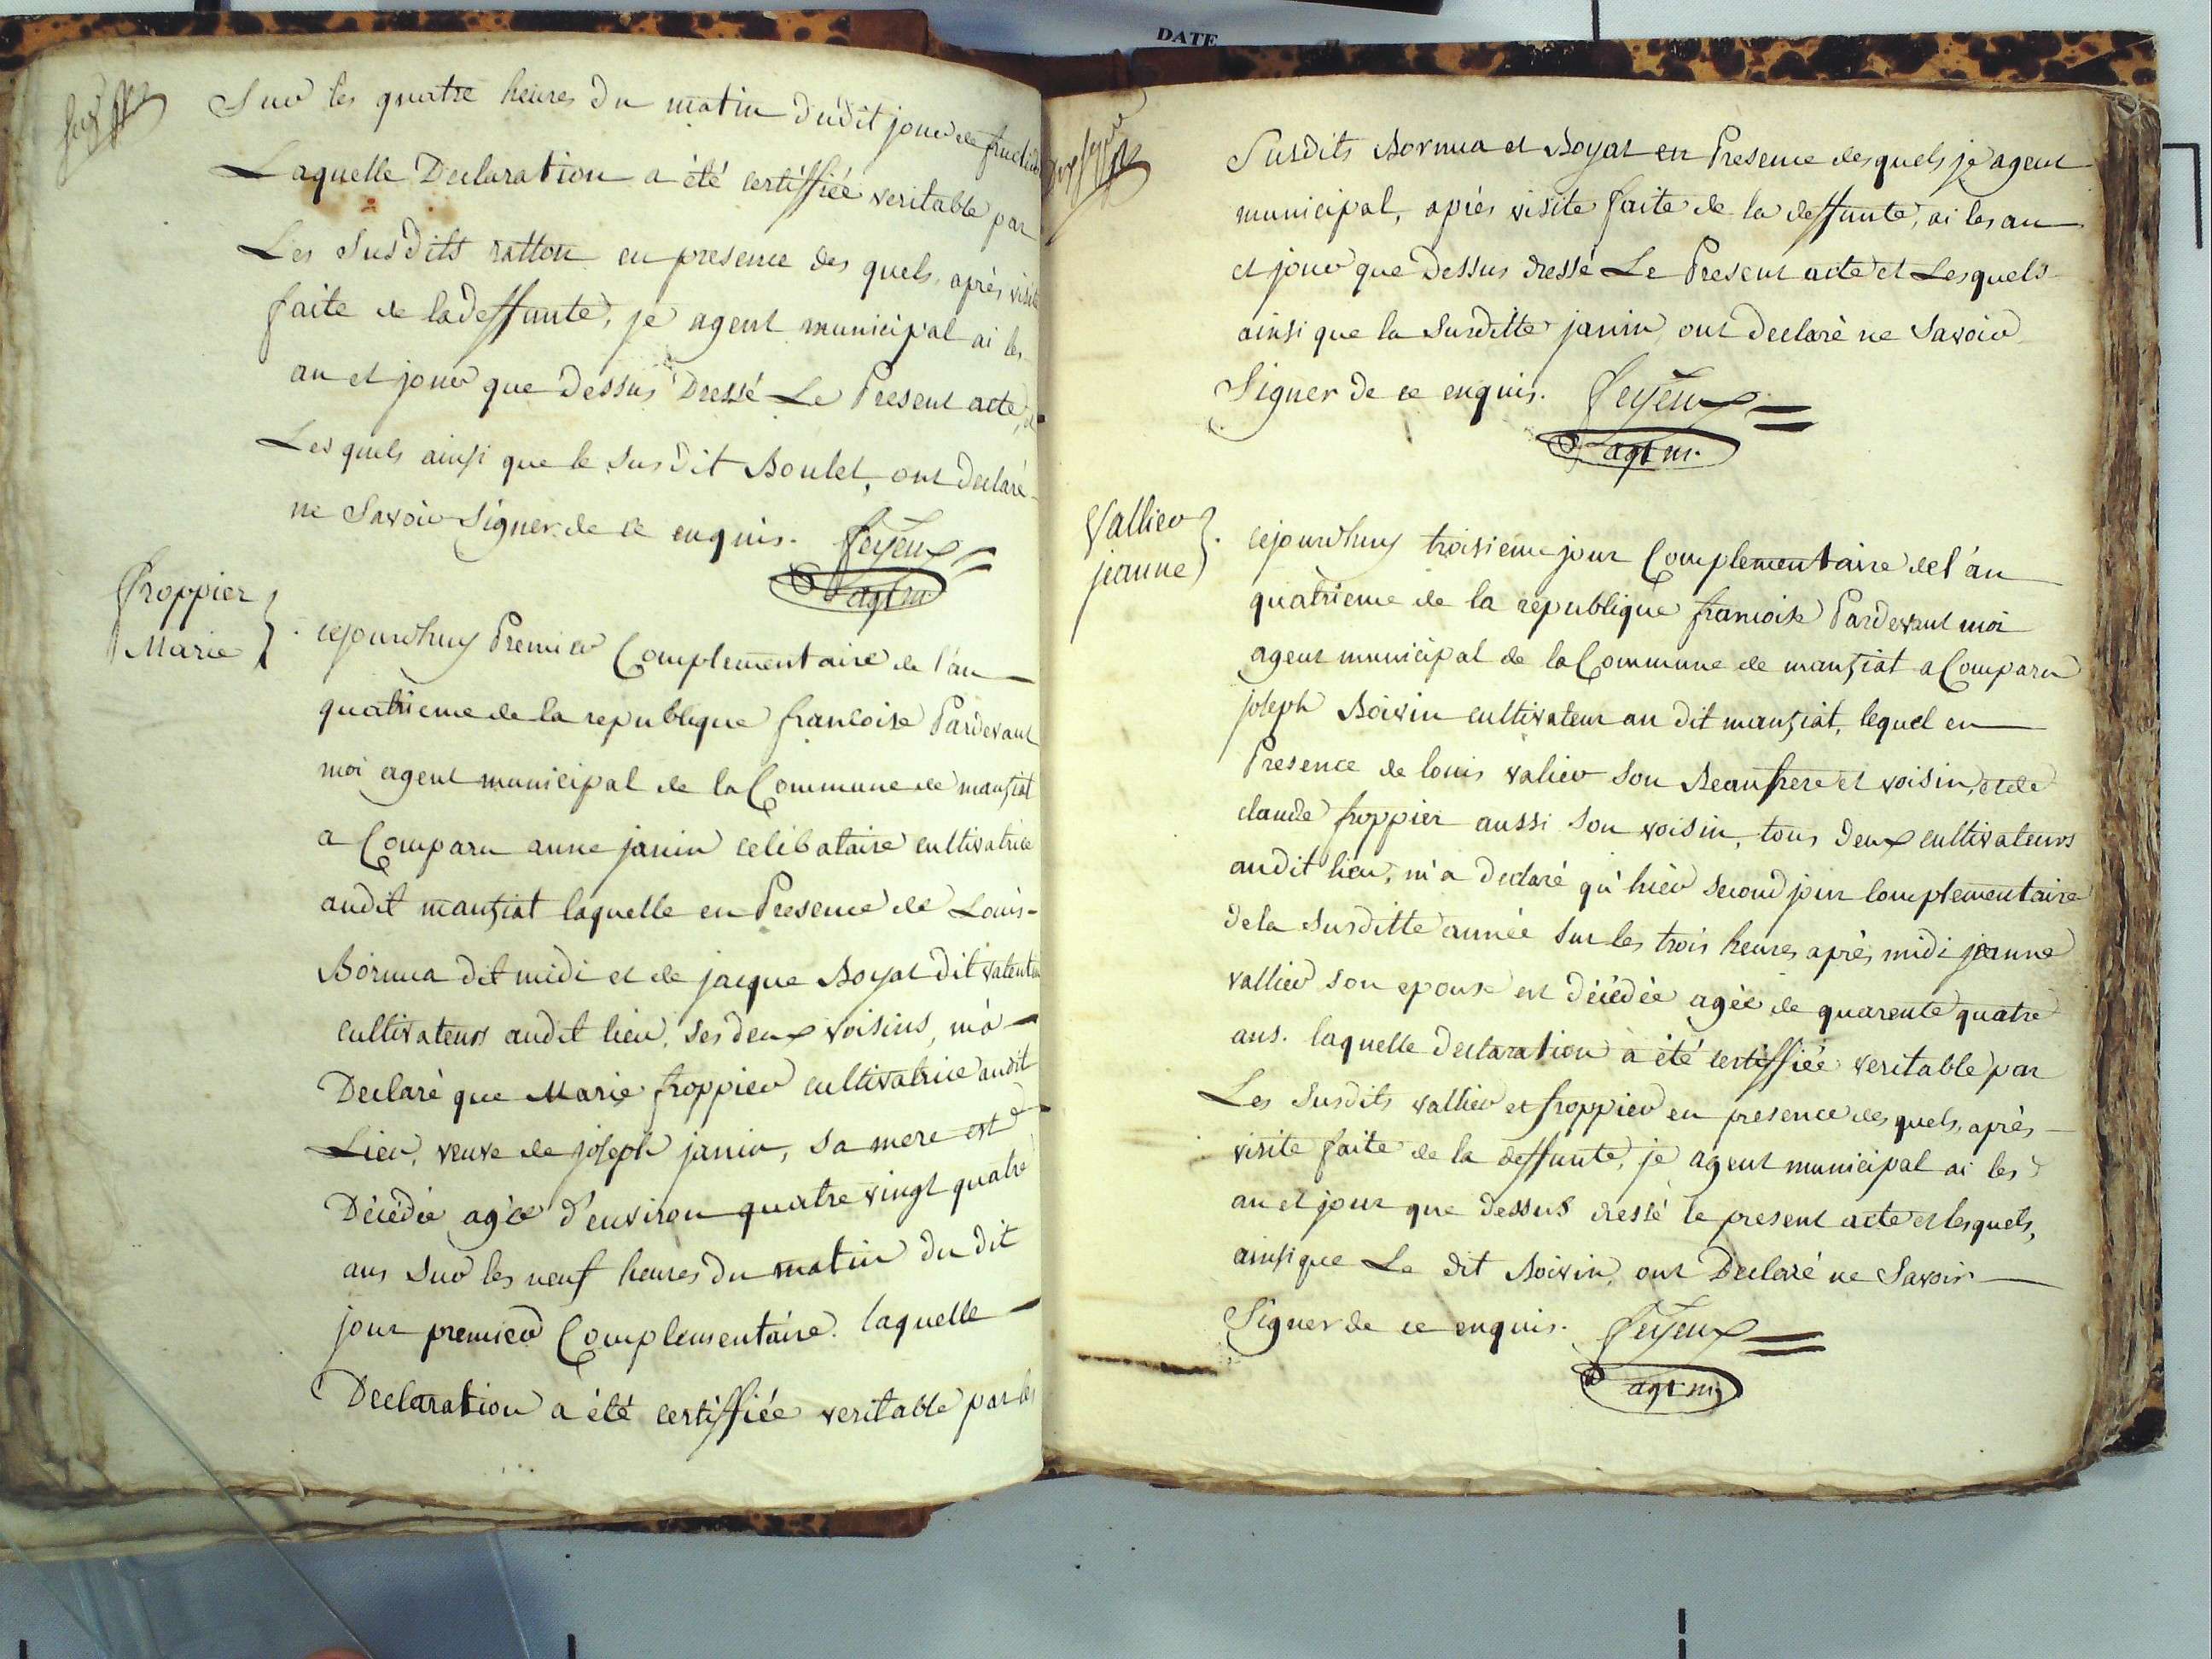 DATE
Sur les quatre heures du matin dudit jour de fructidor
Laquelle Declaration a été certiffiée veritable par
Les Susdits ratton en presence des quels, après visite
faite de la deffunte, je agent municipal ai les
an et jour que dessus Dressé Le Present acte, et
Lesquels ainsi que le susdit Boulet, ont declaré
ne Savoir Signer de ce enquis. feyeux
agt m
froppier
Marie
cejourdhuy Premier Complementaire de l'an
quatrieme de la republique francoise Pardevant
moi agent municipal de la Commune de manziat
a Comparu anne janin celibataire cultivatrice
audit manziat laquelle en Presence de Louis
Bornua dit midi et de jacque Boyat dit valentin
cultivateurs audit lieu, ses deux voisins, m'a
Declaré que Marie froppier cultivatrice audit
Lieu, veuve de joseph janin, sa mere est
Décédée agée d'environ quatre vingt quatre
ans Sur les neuf heures du matin du dit
jour premier Complementaire. laquelle
Declaration a été certiffiée veritable par les
Susdits Bornua et Boyat en Presence desquels je agent
municipal, après visite faite de la deffunte, ai les an
et jour que Dessus dressé Le Present acte et Lesquels
ainsi que la Susditte janin ont declaré ne Savoir
Signer de ce enquis. feyeux
agt m.
Vallier
jeanne
cejourdhuy troisieme jour Complementaire de l'an
quatrieme de la republique francoise Pardevant moi
agent municipal de la Commune de manziat a Comparu
joseph Boivin cultivateur au dit manziat, lequel en
Presence de louis valier son Beaufrere et voisin, et de
claude froppier aussi son voisin, tous deux cultivateurs
audit lieu, m'a declaré qu'hièr second jour complementaire
de la susditte année sur les trois heures après midi jeanne
vallier son epouse est décédée agée de quarente quatre
ans. laquelle declaration a été certiffiée veritable par
Les Susdits vallier et froppier en presence desquels, après
visite faite de la deffunte, je agent municipal ai les
an et jour que dessus dressé le present acte et lesquels,
ainsi que Le dit Boivin, ont Declaré ne Savoir
Signer de ce enquis. feyeux
agt m